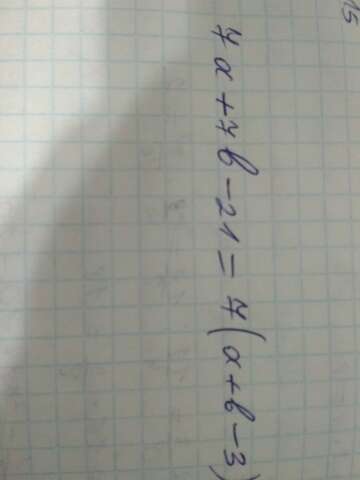 15
7a+7b-21=7(a+b-3)